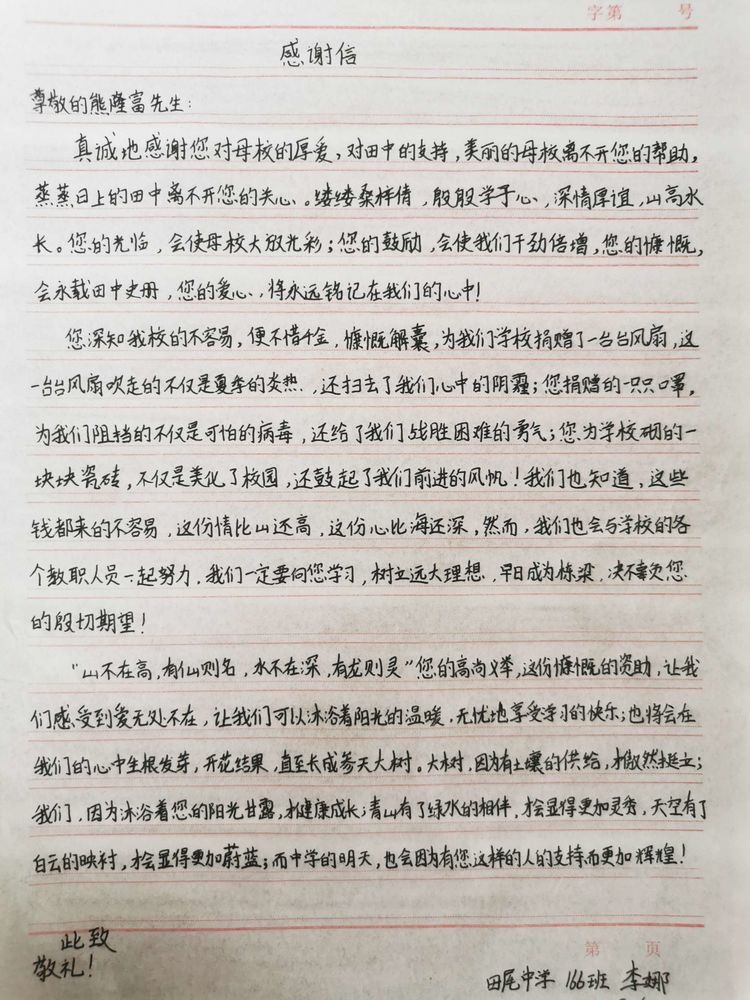 字第 号
感谢信
尊敬的熊隆富先生：
真诚地感谢您对母校的厚爱，对田中的支持，美丽的母校离不开您的帮助，
蒸蒸日上的田中离不开您的关心。缕缕桑梓情，殷殷学子心，深情厚谊，山高水
长。您的光临，会使母校大放光彩；您的鼓励，会使我们干劲倍增，您的慷慨，
会永载田中史册，您的爱心，将永远铭记在我们的心中！
您深知我校的不容易，便不惜千金，慷慨解囊，为我们学校捐赠了一台台风扇，这
一台台风扇吹走的不仅是夏季的炎热，还扫去了我们心中的阴霾；您捐赠的一只只口罩，
为我们阻挡的不仅是可怕的病毒，还给了我们战胜困难的勇气；您为学校砌的一
块块瓷砖，不仅是美化了校园，还鼓起了我们前进的风帆！我们也知道，这些
钱都来的不容易，这份情比山还高，这份心比海还深，然而，我们也会与学校的各
个教职人员一起努力，我们一定要向您学习，树立远大理想，早日成为栋梁，决不辜负您
的殷切期望！
“山不在高，有仙则名，水不在深，有龙则灵”您的高尚义举，这份慷慨的资助，让我
们感受到爱无处不在，让我们可以沐浴着阳光的温暖，无忧地享受学习的快乐；也将会在
我们的心中生根发芽，开花结果，直至长成参天大树。大树，因为有土壤的供给，才傲然挺立；
我们，因为沐浴着您的阳光甘露，才健康成长；青山有了绿水的相伴，才会显得更加灵秀，天空有了
白云的映衬，才会显得更加蔚蓝；而中学的明天，也会因为有您这样的人的支持而更加辉煌！
此致
敬礼！
第 页
田尾中学 166班 李娜